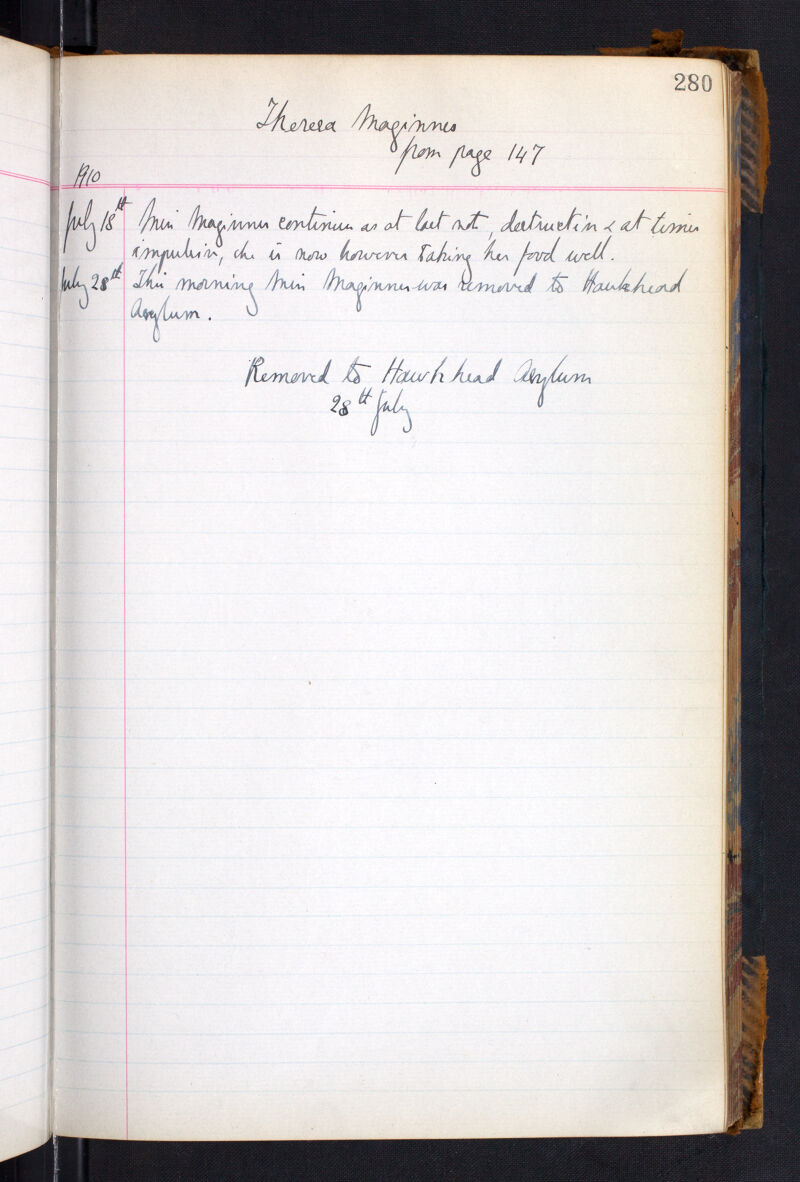 280
Theresa Maginnes
from page 147
1910
July 18th Miss Maginnes continues as at last not, destructive & at times
impulsive, she is now however taking her food well.
July 28th This morning Miss Maginnes was removed to Hawkhead
Asylum.
Removed to Hawkhead Asylum
28th July